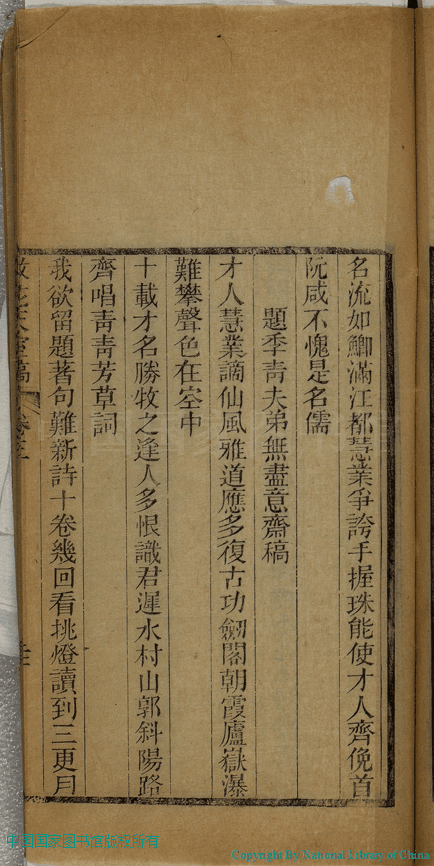 名流如鯽滿江都慧業爭誇手握珠能使才人齊俛首
阮咸不愧是名儒
題季青夫弟無盡意齋稿
才人慧業謫仙風雅道應多復古功劒閣朝霞廬嶽瀑
難攀聲色在空中
十載才名勝牧之逢人多恨識君遲水村山郭斜陽路
齊唱青青芳草詞
我欲留題著句難新詩十卷幾回看挑燈讀到三更月
中国国家图书馆版权所有
Copyright By National Library of China